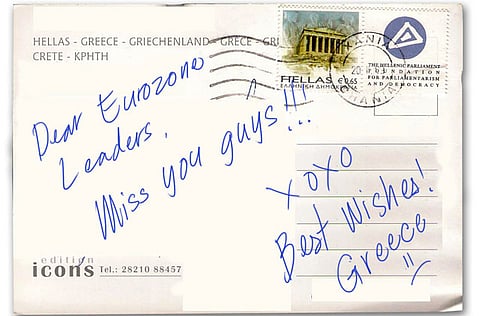 HELLAS - GREECE - GRIECHENLAND - GRECE -
CRETE - ΚΡΗΤΗ
HELLAS €0.65
ΕΛΛΗΝΙΚΗ
THE HELLENIC PARLIAMENT
FOUNDATION
FOR PARLIAMENTARISM
AND DEMOCRACY
Dear Eurozone
Leaders,
Miss you guys!!!
XOXO
Best Wishes!
Greece
edition
icons Tel.: 28210 88457